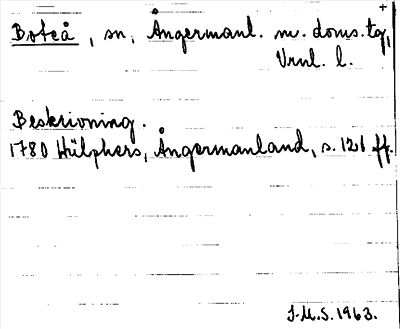 +
Boteå, sn, Ångermanl. m. doms.tg,
Vrnl. l.
Beskrivning.
1780 Hülphers, Ångermanland, s. 121 ff.
J.M.S. 1963.